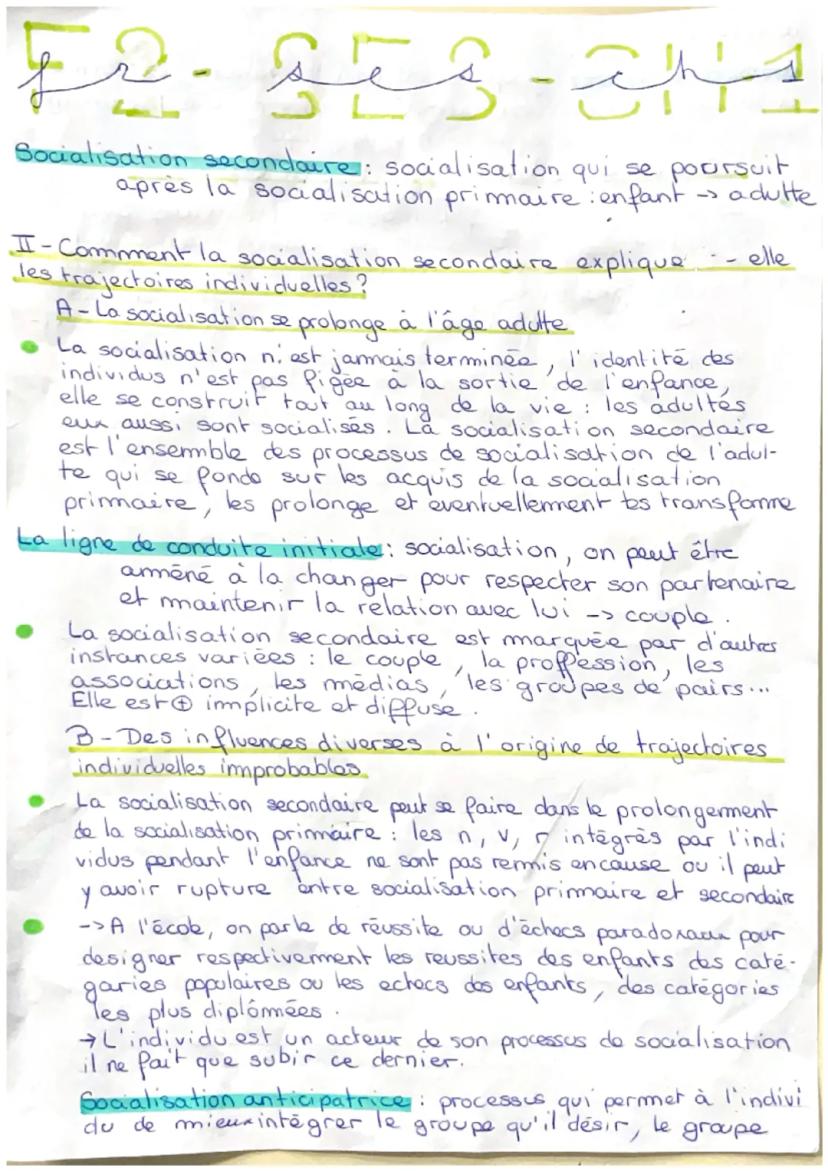 f2 - ses - ch1
Socialisation secondaire : socialisation qui se poursuit
après la socialisation primaire : enfant -> adulte
II - Comment la socialisation secondaire explique - elle
les trajectoires individuelles ?
A - La socialisation se prolonge à l'âge adulte
La socialisation n'est jamais terminée, l'identité des
individus n'est pas figée à la sortie de l'enfance,
elle se construit tout au long de la vie : les adultes
eux aussi sont socialisés. La socialisation secondaire
est l'ensemble des processus de socialisation de l'adul-
te qui se fonde sur les acquis de la socialisation
primaire, les prolonge et éventuellement les transforme
La ligne de conduite initiale : socialisation, on peut être
amméné à la changer pour respecter son partenaire
et maintenir la relation avec lui -> couple.
La socialisation secondaire est marquée par d'autres
instances variées : le couple, la proffession, les
associations, les médias, les groupes de pairs...
Elle est ⊕ implicite et diffuse.
B - Des influences diverses à l'origine de trajectoires
individuelles improbables
La socialisation secondaire peut se faire dans le prolongement
de la socialisation primaire : les n, v, r intégrés par l'indi
vidus pendant l'enfance ne sont pas remis en cause ou il peut
y avoir rupture entre socialisation primaire et secondaire
-> A l'école, on parle de réussite ou d'échecs paradoxaux pour
designer respectivement les reussites des enfants des caté-
gories populaires ou les echecs des enfants, des catégories
les plus diplômées.
-> L'individu est un acteur de son processus de socialisation
il ne fait que subir ce dernier.
Socialisation anticipatrice : processus qui permet à l'indivi
du de mieux intégrer le groupe qu'il désir, le groupe